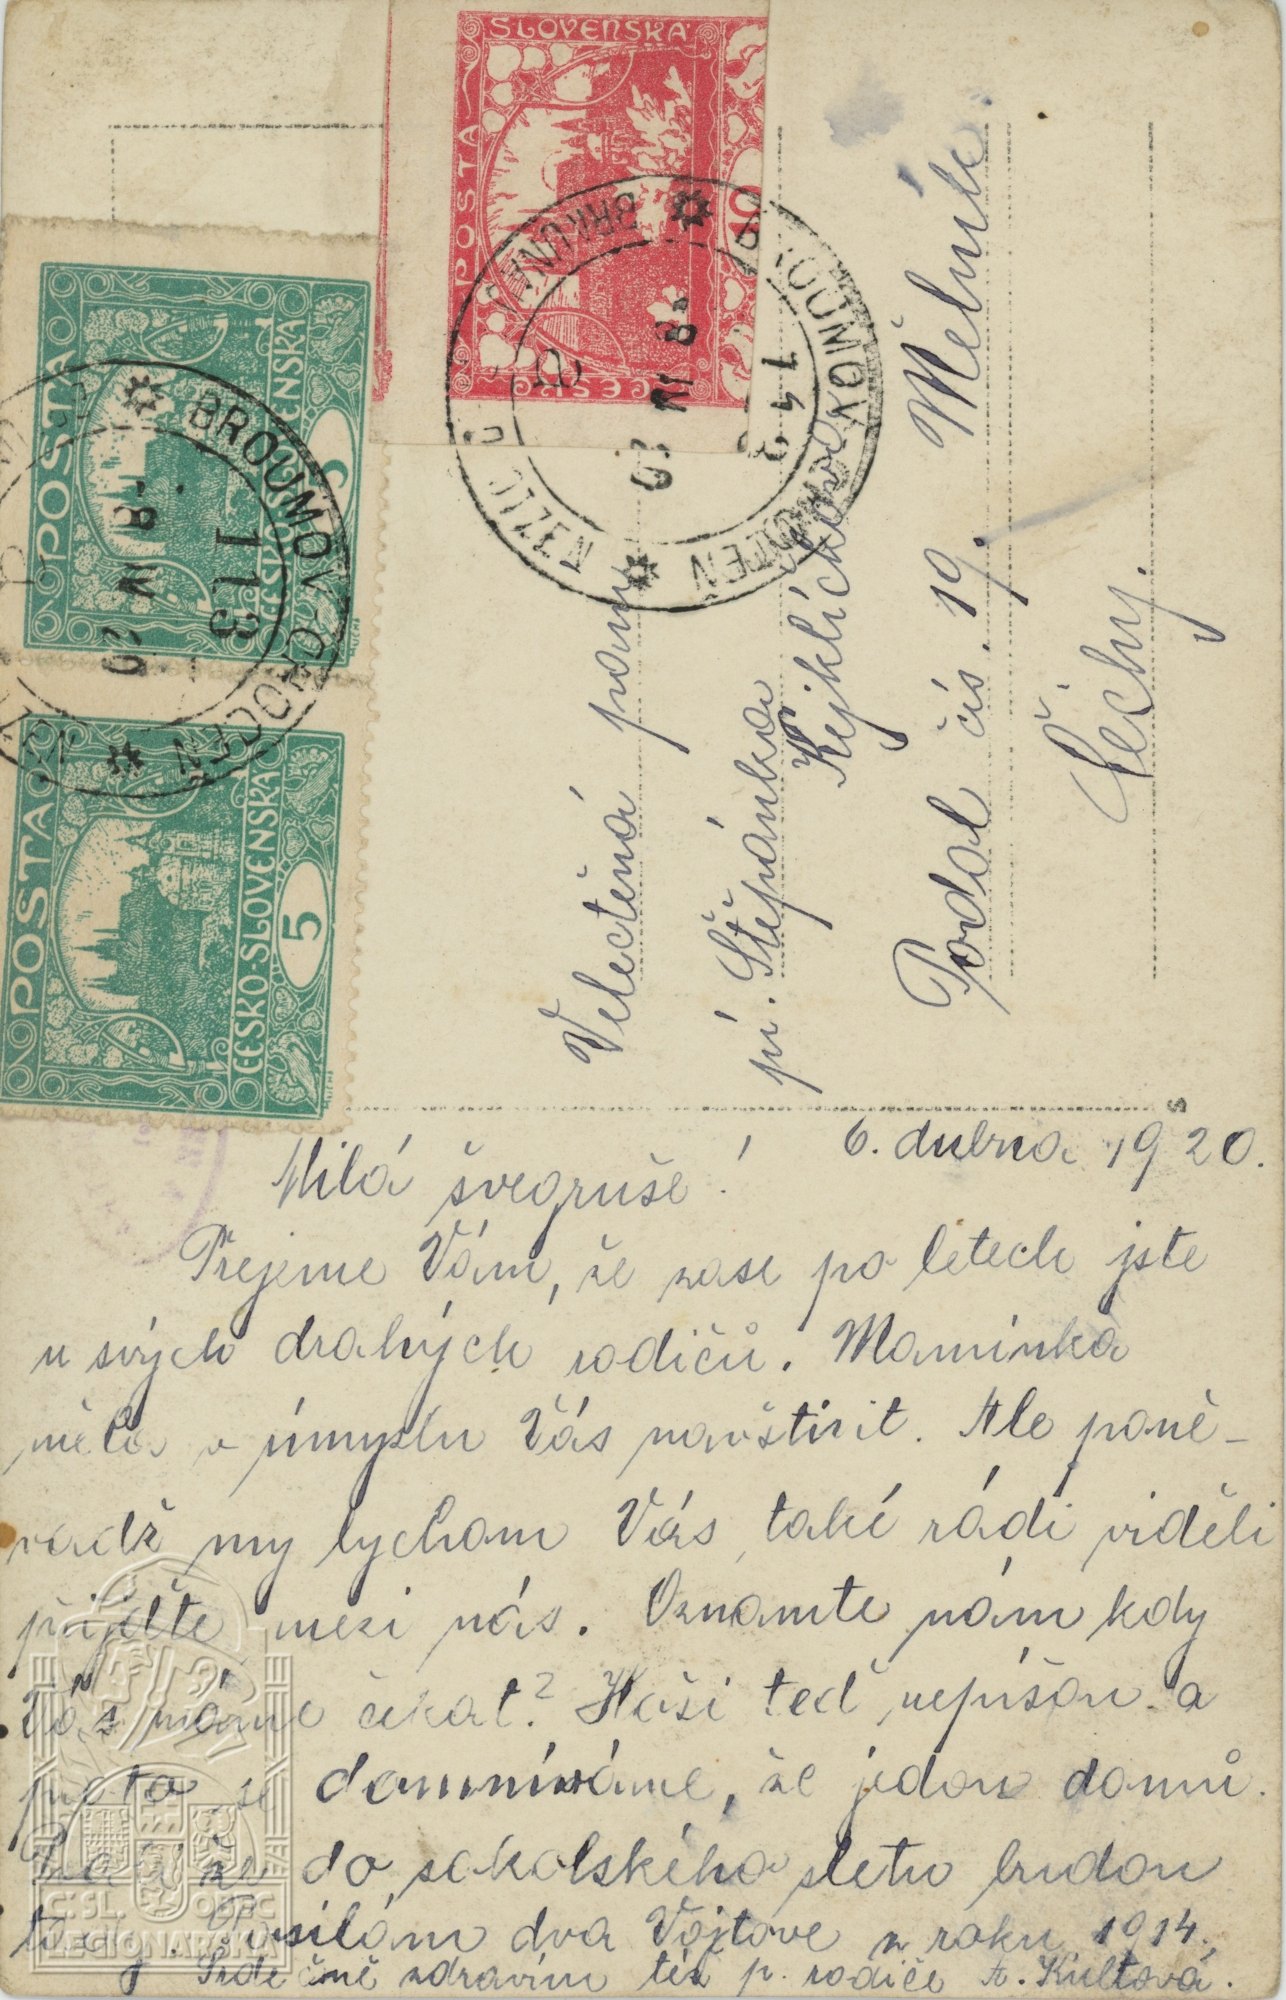 POSTA
ČESKO-SLOVENSKÁ
5
POSTA
ČESKO-SLOVENSKÁ
5
POSTA
SLOVENSKÁ
BROUMOV-CHOCEŇ
113
-8 IV 20
8 IV 20
Velectěná paní
pí. Štěpánka
Kejklíčková
Podol čís. 19. Mělník
Čechy.
6. dubna 1920.
Milá švegruše!
Přejeme Vám, že zase po letech jste
u svých drahých rodičů. Maminka
měla v úmyslu Vás navštívit. Ale poně-
vadž my bychom Vás také rádi viděli
přijďte mezi nás. Oznamte nám kdy
Vás máme čekat? Haši teď nepíšou a
proto se domníváme, že jedou domů.
že do sokolského sletu budou
tady. Posílám dva Vojtove z roku 1914,
Srdečně zdravím též p. rodiče A. Kultová.
Č.SL. OBEC
LEGIONÁŘSKÁ